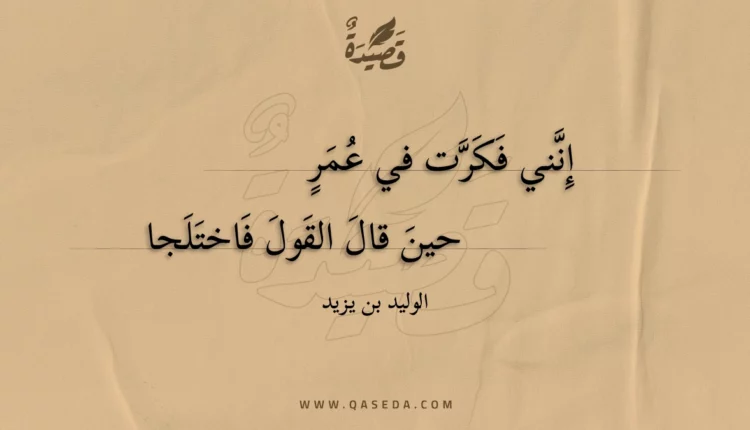 قَصِيدَةٌ
إِنَّني فَكَرَّت في عُمَرٍ
حينَ قالَ القَولَ فَاختَلَجا
الوليد بن يزيد
WWW.QASEDA.COM